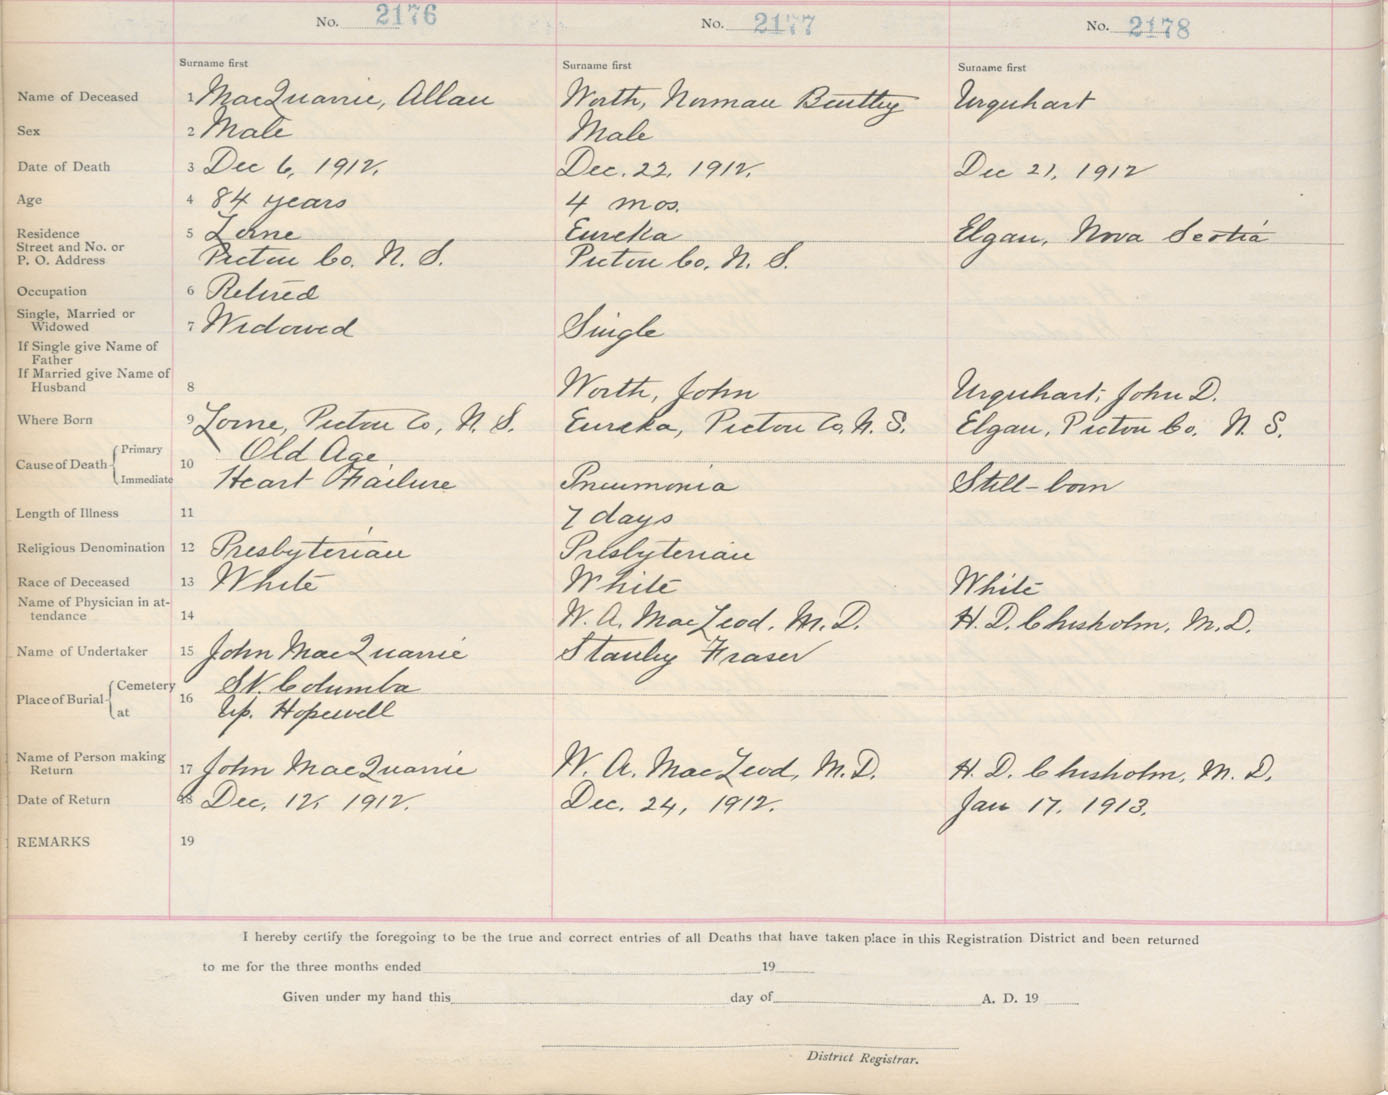 No. 2176 No. 2177 No. 2178
Surname first Surname first Surname first
Name of Deceased 1 MacQuarrie, Allan Worth, Norman Bentley Urquhart
Sex 2 Male Male
Date of Death 3 Dec 6, 1912. Dec. 22, 1912. Dec 21, 1912
Age 4 84 years 4 mos.
Residence 5 Lorne Eureka Elgan, Nova Scotia
Street and No. or
P. O. Address Pictou Co. N. S. Pictou Co. N. S.
Occupation 6 Retired
Single, Married or
Widowed 7 Widowed Single
If Single give Name of
Father
If Married give Name of
Husband 8 Worth, John Urquhart, John D.
Where Born 9 Lorne, Pictou Co, N. S. Eureka, Pictou Co, N. S. Elgan, Pictou Co. N. S.
Cause of Death Primary 10 Old Age
Immediate Heart Failure Pneumonia Still-born
Length of Illness 11 7 days
Religious Denomination 12 Presbyterian Presbyterian
Race of Deceased 13 White White White
Name of Physician in at-
tendance 14 W. A. MacLeod. M. D. H. D. Chisholm, M. D.
Name of Undertaker 15 John MacQuarrie Stanley Fraser
Place of Burial Cemetery 16 St. Columba
at Up. Hopewell
Name of Person making
Return 17 John MacQuarrie W. A. MacLeod, M. D. H. D. Chisholm, M. D.
Date of Return 18 Dec. 12, 1912. Dec. 24, 1912. Jan 17, 1913.
REMARKS 19
I hereby certify the foregoing to be the true and correct entries of all Deaths that have taken place in this Registration District and been returned
to me for the three months ended 19
Given under my hand this day of A. D. 19
District Registrar.